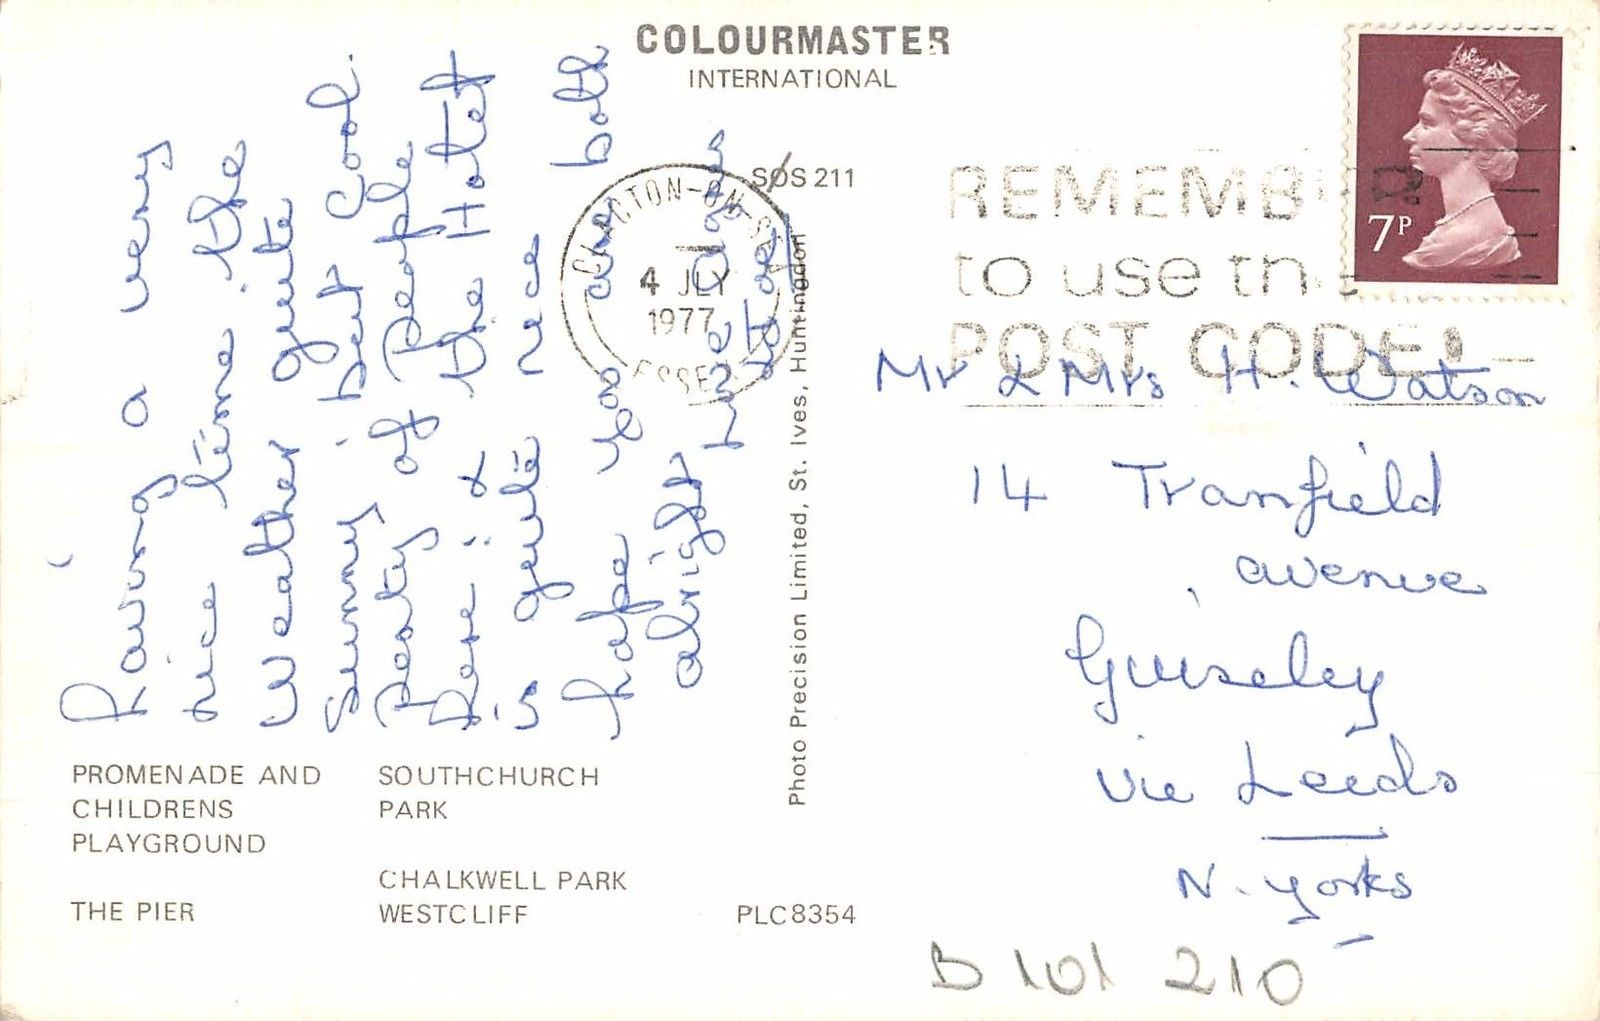 COLOURMASTER
INTERNATIONAL
SOS 211
CLACTON-ON-SEA
4 JLY
1977
ESSEX
REMEMBER
to use the
POST CODE!
7P
Having a very
nice time the
weather quite
sunny but cool.
Peaty of People
Here & the Hotel
is quite nice
hope you are both
alright
Mr & Mrs H. Watson
14 Tranfield
avenue
Guiseley
Vie Leeds
N. Yorks
Photo Precision Limited, St. Ives, Huntingdon
PROMENADE AND
CHILDRENS
PLAYGROUND
THE PIER
SOUTHCHURCH
PARK
CHALKWELL PARK
WESTCLIFF
PLC8354
B 101 210